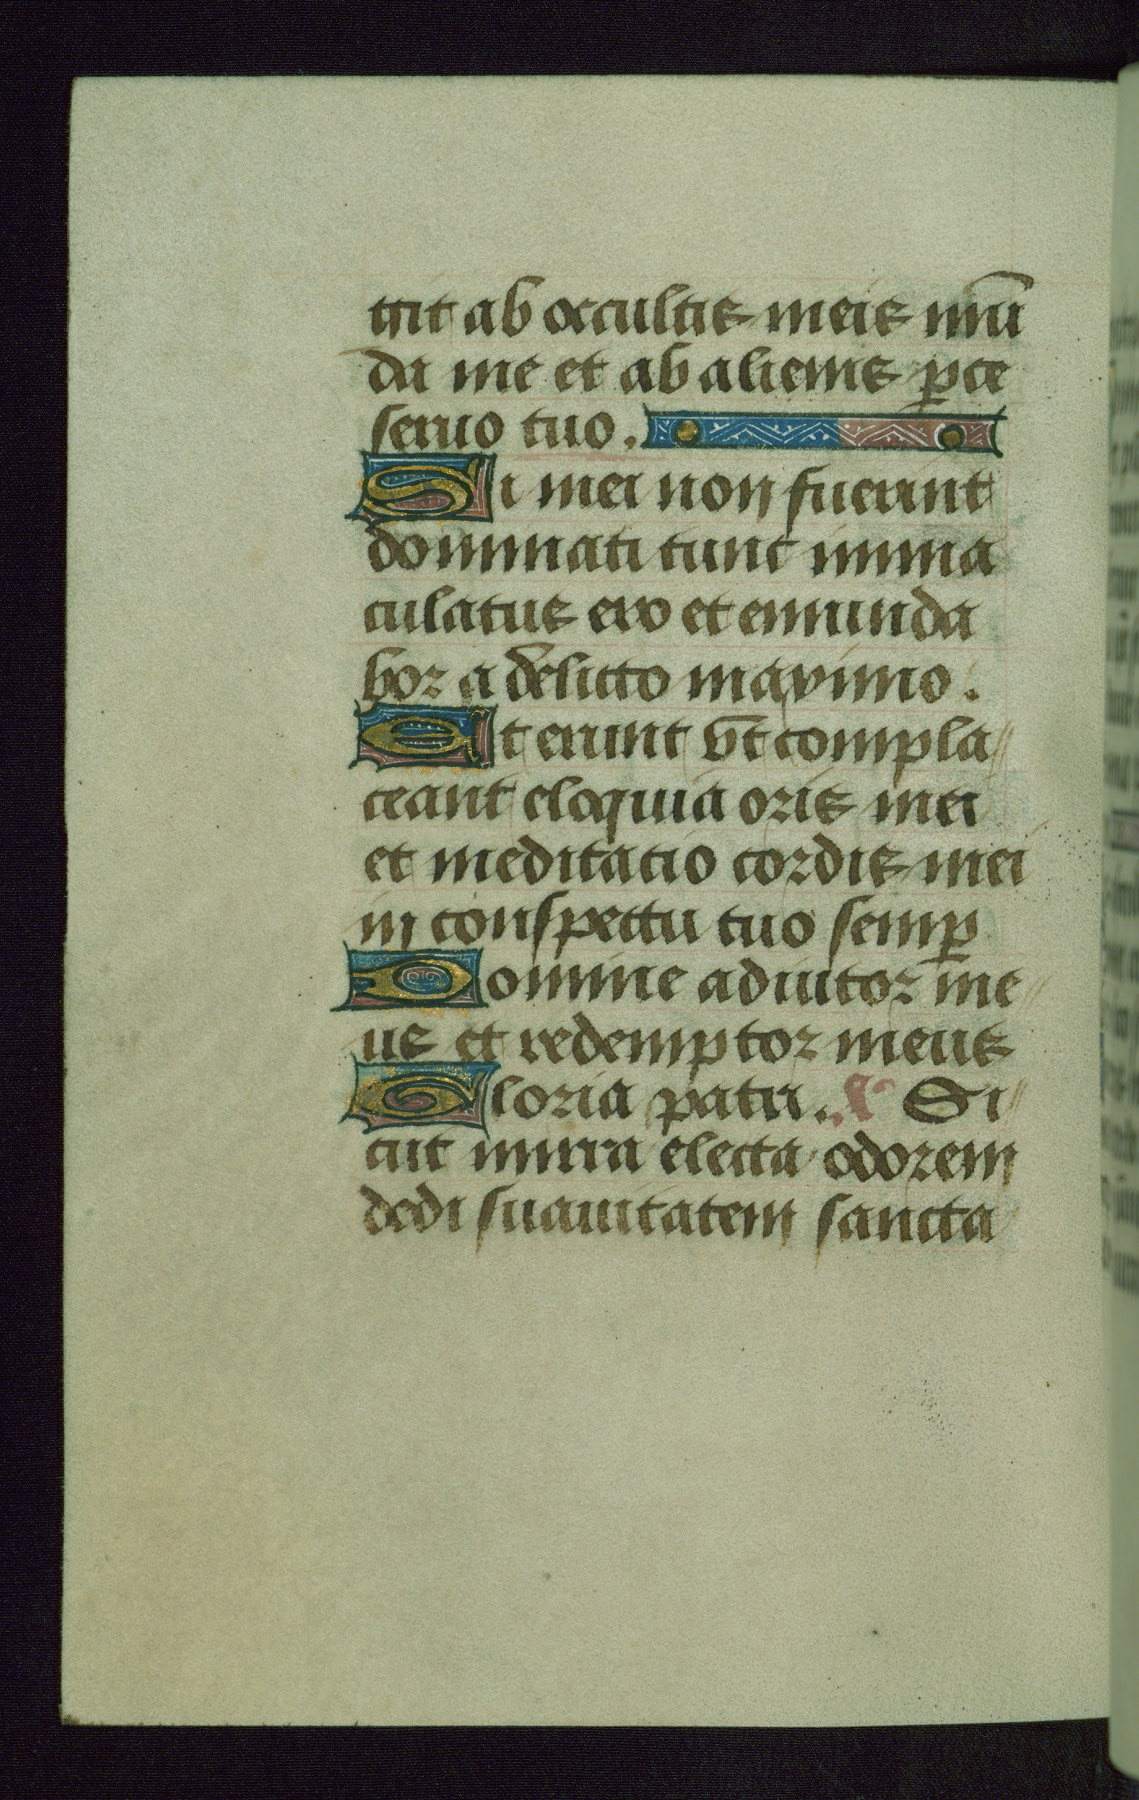 git ab occultis meis mūn
da me et ab alienis ꝑce
seruo tuo.
Si mei non fuerint
dominati tunc imma
culatus ero et emunda
bor a delicto maximo.
Et erunt vt compla
ceant eloquia oris mei
et meditatio cordis mei
in conspectu tuo semꝑ
Domine adiutor me
us et redemptor meus
Gloria patri. Si
cut mirra electa odorem
dedi suauitatem sancta